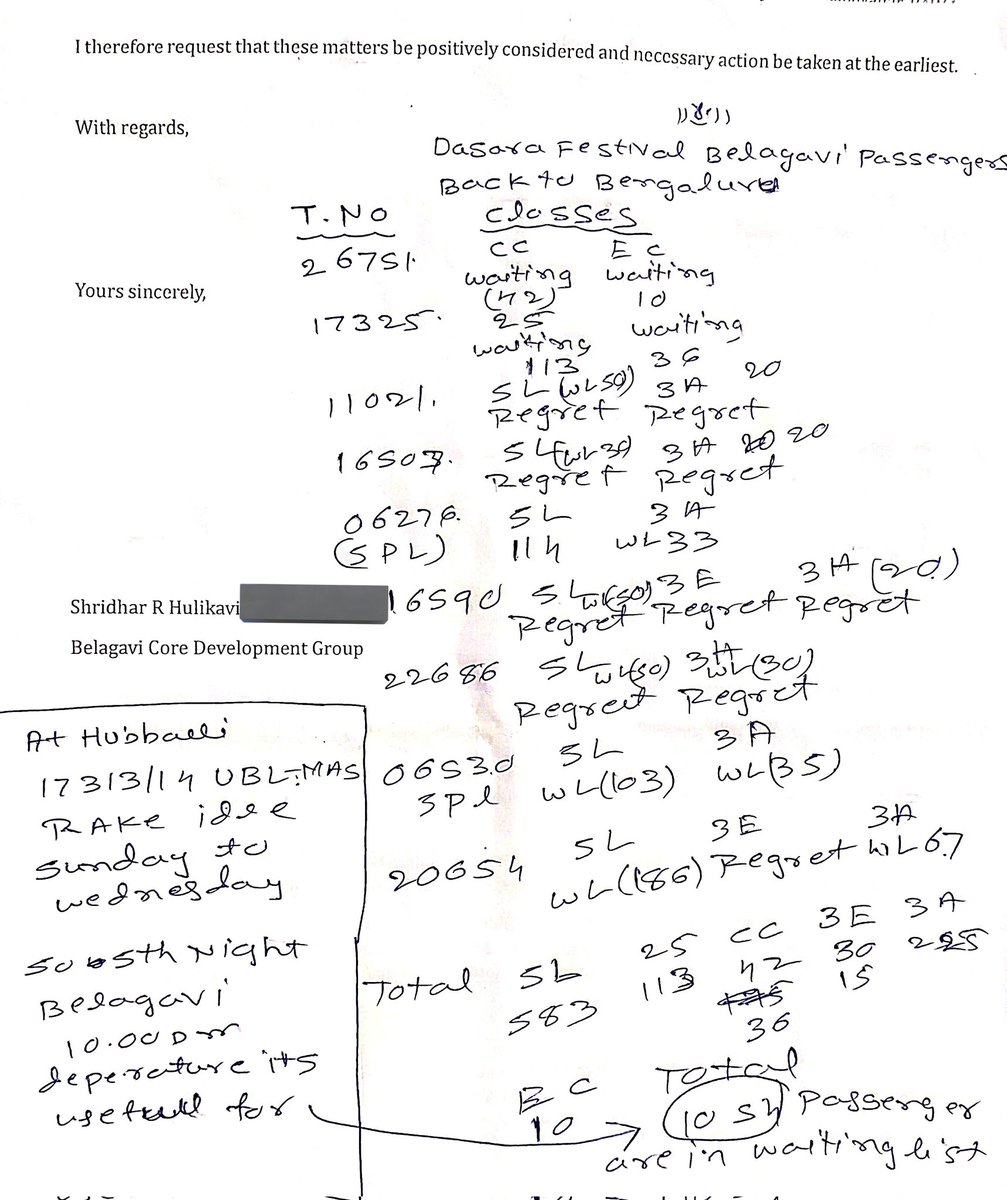 I therefore request that these matters be positively considered and necessary action be taken at the earliest.
With regards,
Dasara Festival Belagavi Passengers
Back to Bengaluru
T.NO Classes
26751. CC EC
waiting waiting
(42) 10
Yours sincerely,
17325. 2S waiting
waiting 36
113
11021. SL (WL50) 3A 20
Regret Regret
16503. SL (WL30) 3A 20
Regret Regret
06276. SL 3A
(SPL) 114 WL33
16590 SL WL(50) 3E 3A (20)
Regret Regret Regret
Shridhar R Hulikavi
Belagavi Core Development Group
22686 SL WL(50) 3A WL(30)
Regret Regret
06530 SL 3A
Spl WL(103) WL(35)
20654 SL 3E 3A
WL(186) Regret WL67
Total SL 2S CC 3E 3A
583 113 42 30 225
36 15
EC Total
10 1054 Passenger
are in waiting list
At Hubballi
17313/14 UBL-MAS
RAKE idle
Sunday to
wednesday
So 5th Night
Belagavi
10.00
deperature its
usefull for